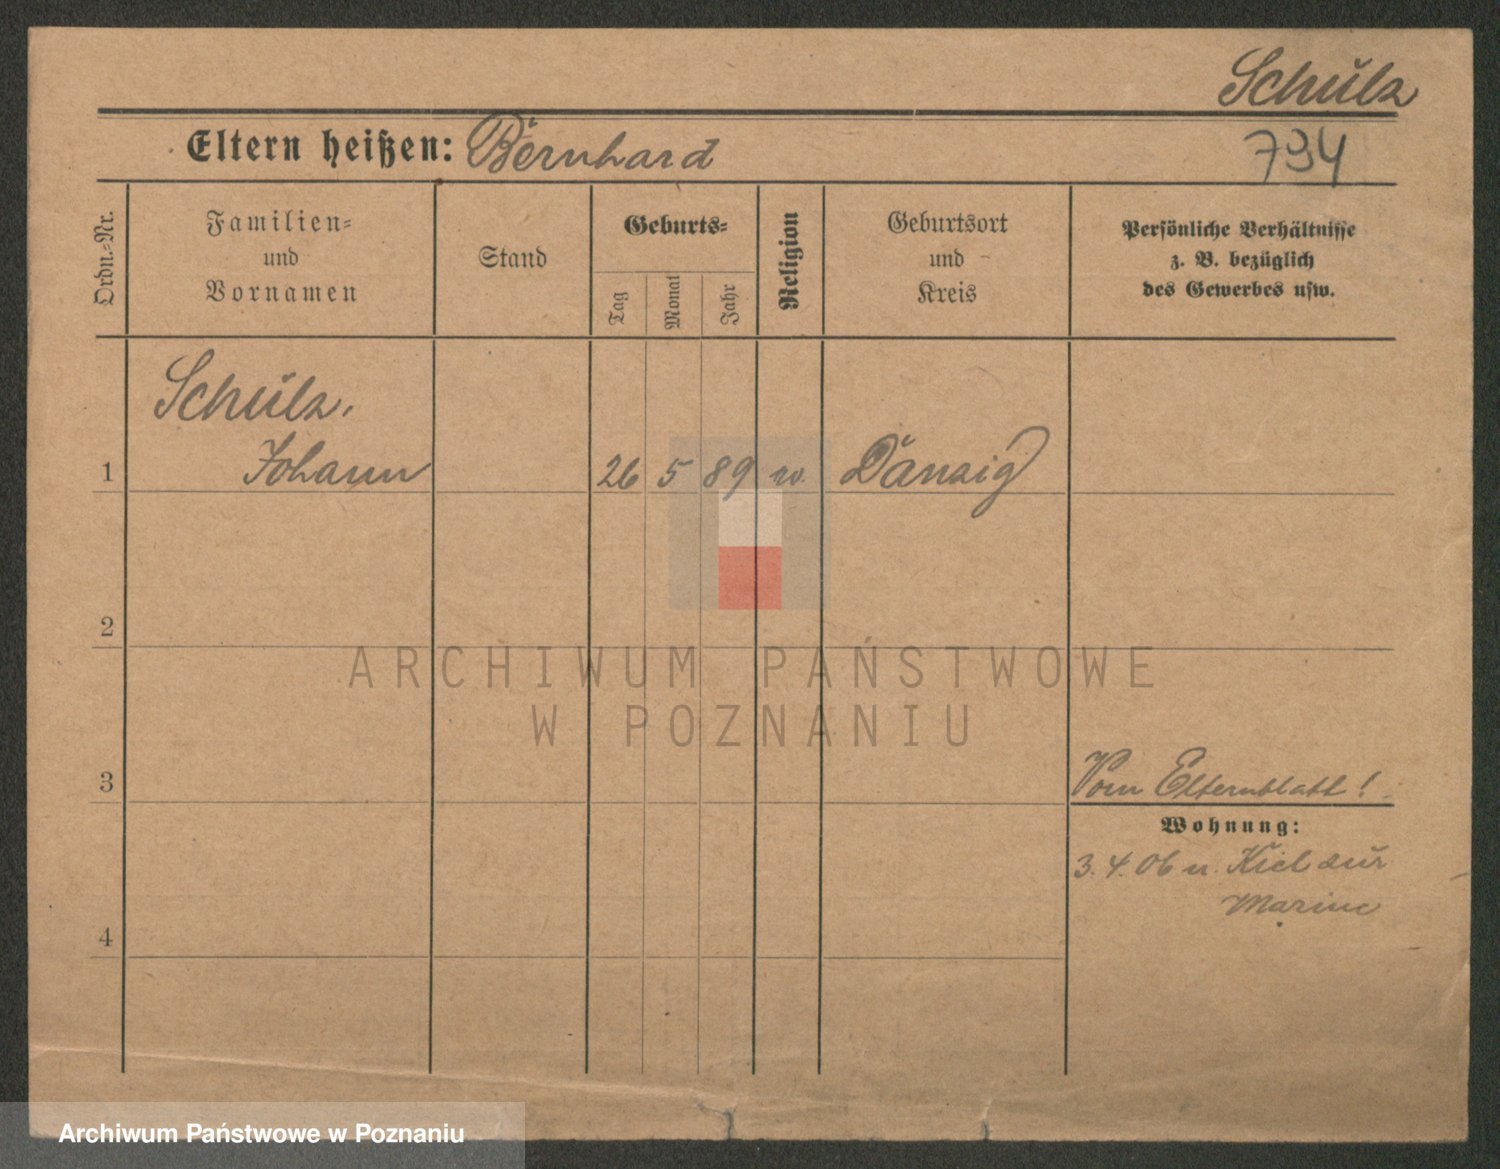 Schulz
Eltern heißen: Bernhard
794
Ordn.-Nr.
Familien=
und
Vornamen
Stand
Geburts=
Tag
Monat
Jahr
Religion
Geburtsort
und
Kreis
Persönliche Verhältnisse
z. B. bezüglich
des Gewerbes usw.
Schulz,
1 Johann 26 5 89 w. Danzig
2
ARCHIWUM PAŃSTWOWE
W POZNANIU
3
Vom Elternblatt!
Wohnung:
3. 4. 06 n. Kiel zur
Marine
4
Archiwum Państwowe w Poznaniu